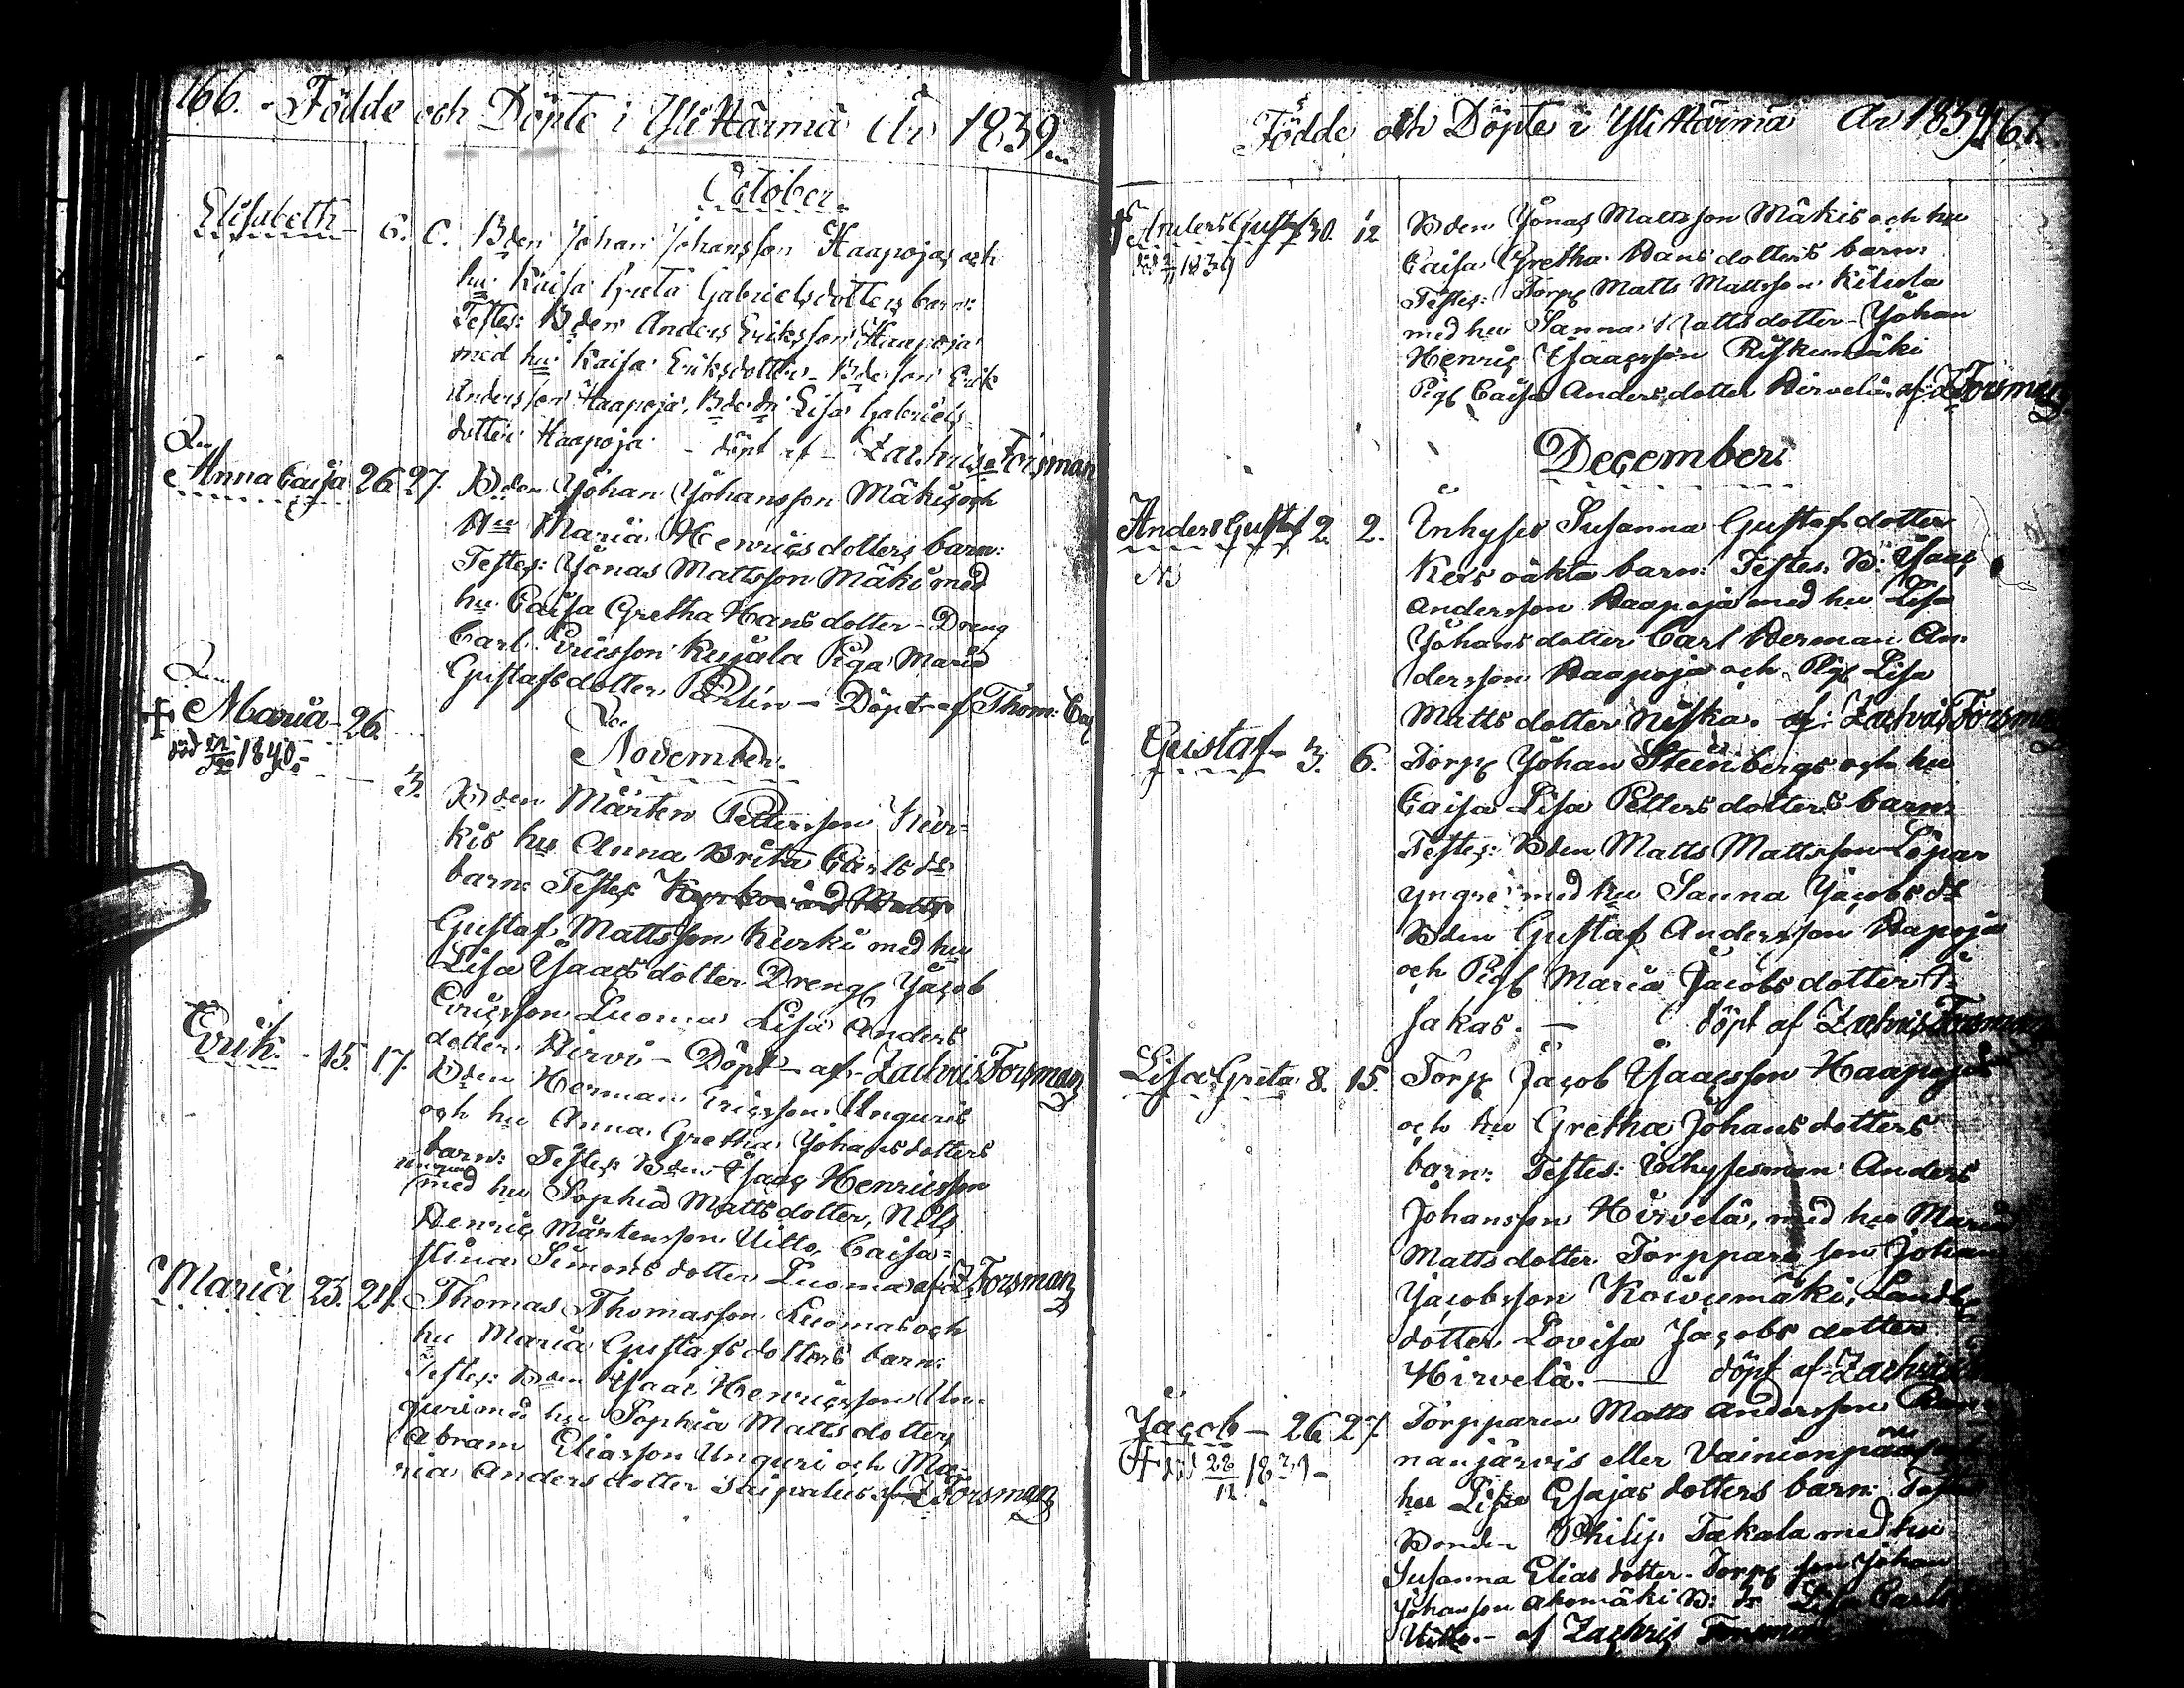 166. Födde och Döpte i Yli Härmä År 1839.
October.
Elisabeth 6. 6. Bden Johan Johansson Haapojas och
hu Kaisa Greta Gabrielsdotters barn:
Testes: Bden Anders Eriksson Haapoja
med hu Kaisa Eriksdotter Bdeson Erik
Andersson Haapoja, Bdedr Lisa Gabriels-
dotter Haapoja döpt af Zachris Forsman
Anna Caisa 26. 27. Bden Johan Johansson Mäkis och
Hu Maria Henricsdotters barn:
Testes: Jonas Mattsson Mäki med
hu Caisa Gretha Hansdotter - Dreng
Carl Ericsson Kujala Piga Maria
Gustafsdotter Pelin - Döpt af Thom:
November.
Maria - 26.
död 1840.
3. Bden Mårten Pettersson Kur-
kis hu Anna Brita Carlsdr
barn: Testes:
Gustaf Mattsson Kurki med hu
Lisa Isaacsdotter Dreng Jacob
Ericsson Luoma Lisa Anders
dotter Hirvi - Döpt - af Zachris Forsman
Erik. - 15. 17. Bden Herman Ericsson Unguris
och hu Anna Gretha Johansdotters
barn: Testes: Bden Isaac Henricsson
med hu Sophia Mattsdotter, Nils
Henric Mårtensson Uitto, Caisa=
stina Simonsdotter Luoma af Z. Forsman
Maria 23. 24. Thomas Thomasson Luomas och
hu Maria Gustafsdotters barn:
Testes: Bden Isaac Henricsson Un-
guri med hu Sophia Mattsdotter,
Abram Eliasson Unguri och Ma-
ria Andersdotter af Z Forsman
Födde och Döpte i Yli Härmä År 1839 167.
Anders Gustaf 30. 12 Bden Jonas Mattsson Mäkis och hu
död 1839
Caisa Gretha Hansdotters barn:
Testes: Torp Matts Mattsson
med hu Sanna Mattsdotter - Johan
Henric Isaacsson
Pig Caisa Andersdotter Hirvelä. af Z Forsman
December.
Anders Gustaf 2. 2. Inhyses Susanna Gustafsdotter
Kers oäkta barn: Testes: B: Isaac
Andersson Haapoja med hu Lisa
Johansdotter Carl Herman An-
dersson Haapoja och Pig Lisa
Mattsdotter Niska. af Zachris Forsman
Gustaf - 3. 6. Torp Johan Steinbergs och hu
Caisa Lisa Pettersdotters barn:
Testes: Bden Matts Mattsson Löpar
yngre med hu Sanna Jacobsdr
Bden Gustaf Andersson Hapoja
och Pig Maria Jacobsdotter
sakas. - döpt af Zachris Forsman
Lisa Greta 8. 15 Torp Jacob Isaacsson Haapojas
och hu Gretha Johansdotters
barn: Testes: Inhysesman Anders
Johansson Hirvelä, med hu Maria
Mattsdotter Torppare son Johan
Jacobsson Koivumäki,
dotter Lovisa Jacobsdotter
Hirvelä. - döpt af Zachris
Jacob - 26 27. Torpparen Matts Andersson
död 28/12 1839 -
nanjärvis eller Vainionpää
hu Lisa Esajas dotters barn: Testes
Bonden Philip Takala med hu
Susanna Elias dotter. Torp son Johan
Johansson Ahomäki B: dr Lisa Carls
Uitto. - af Zachris Forsman